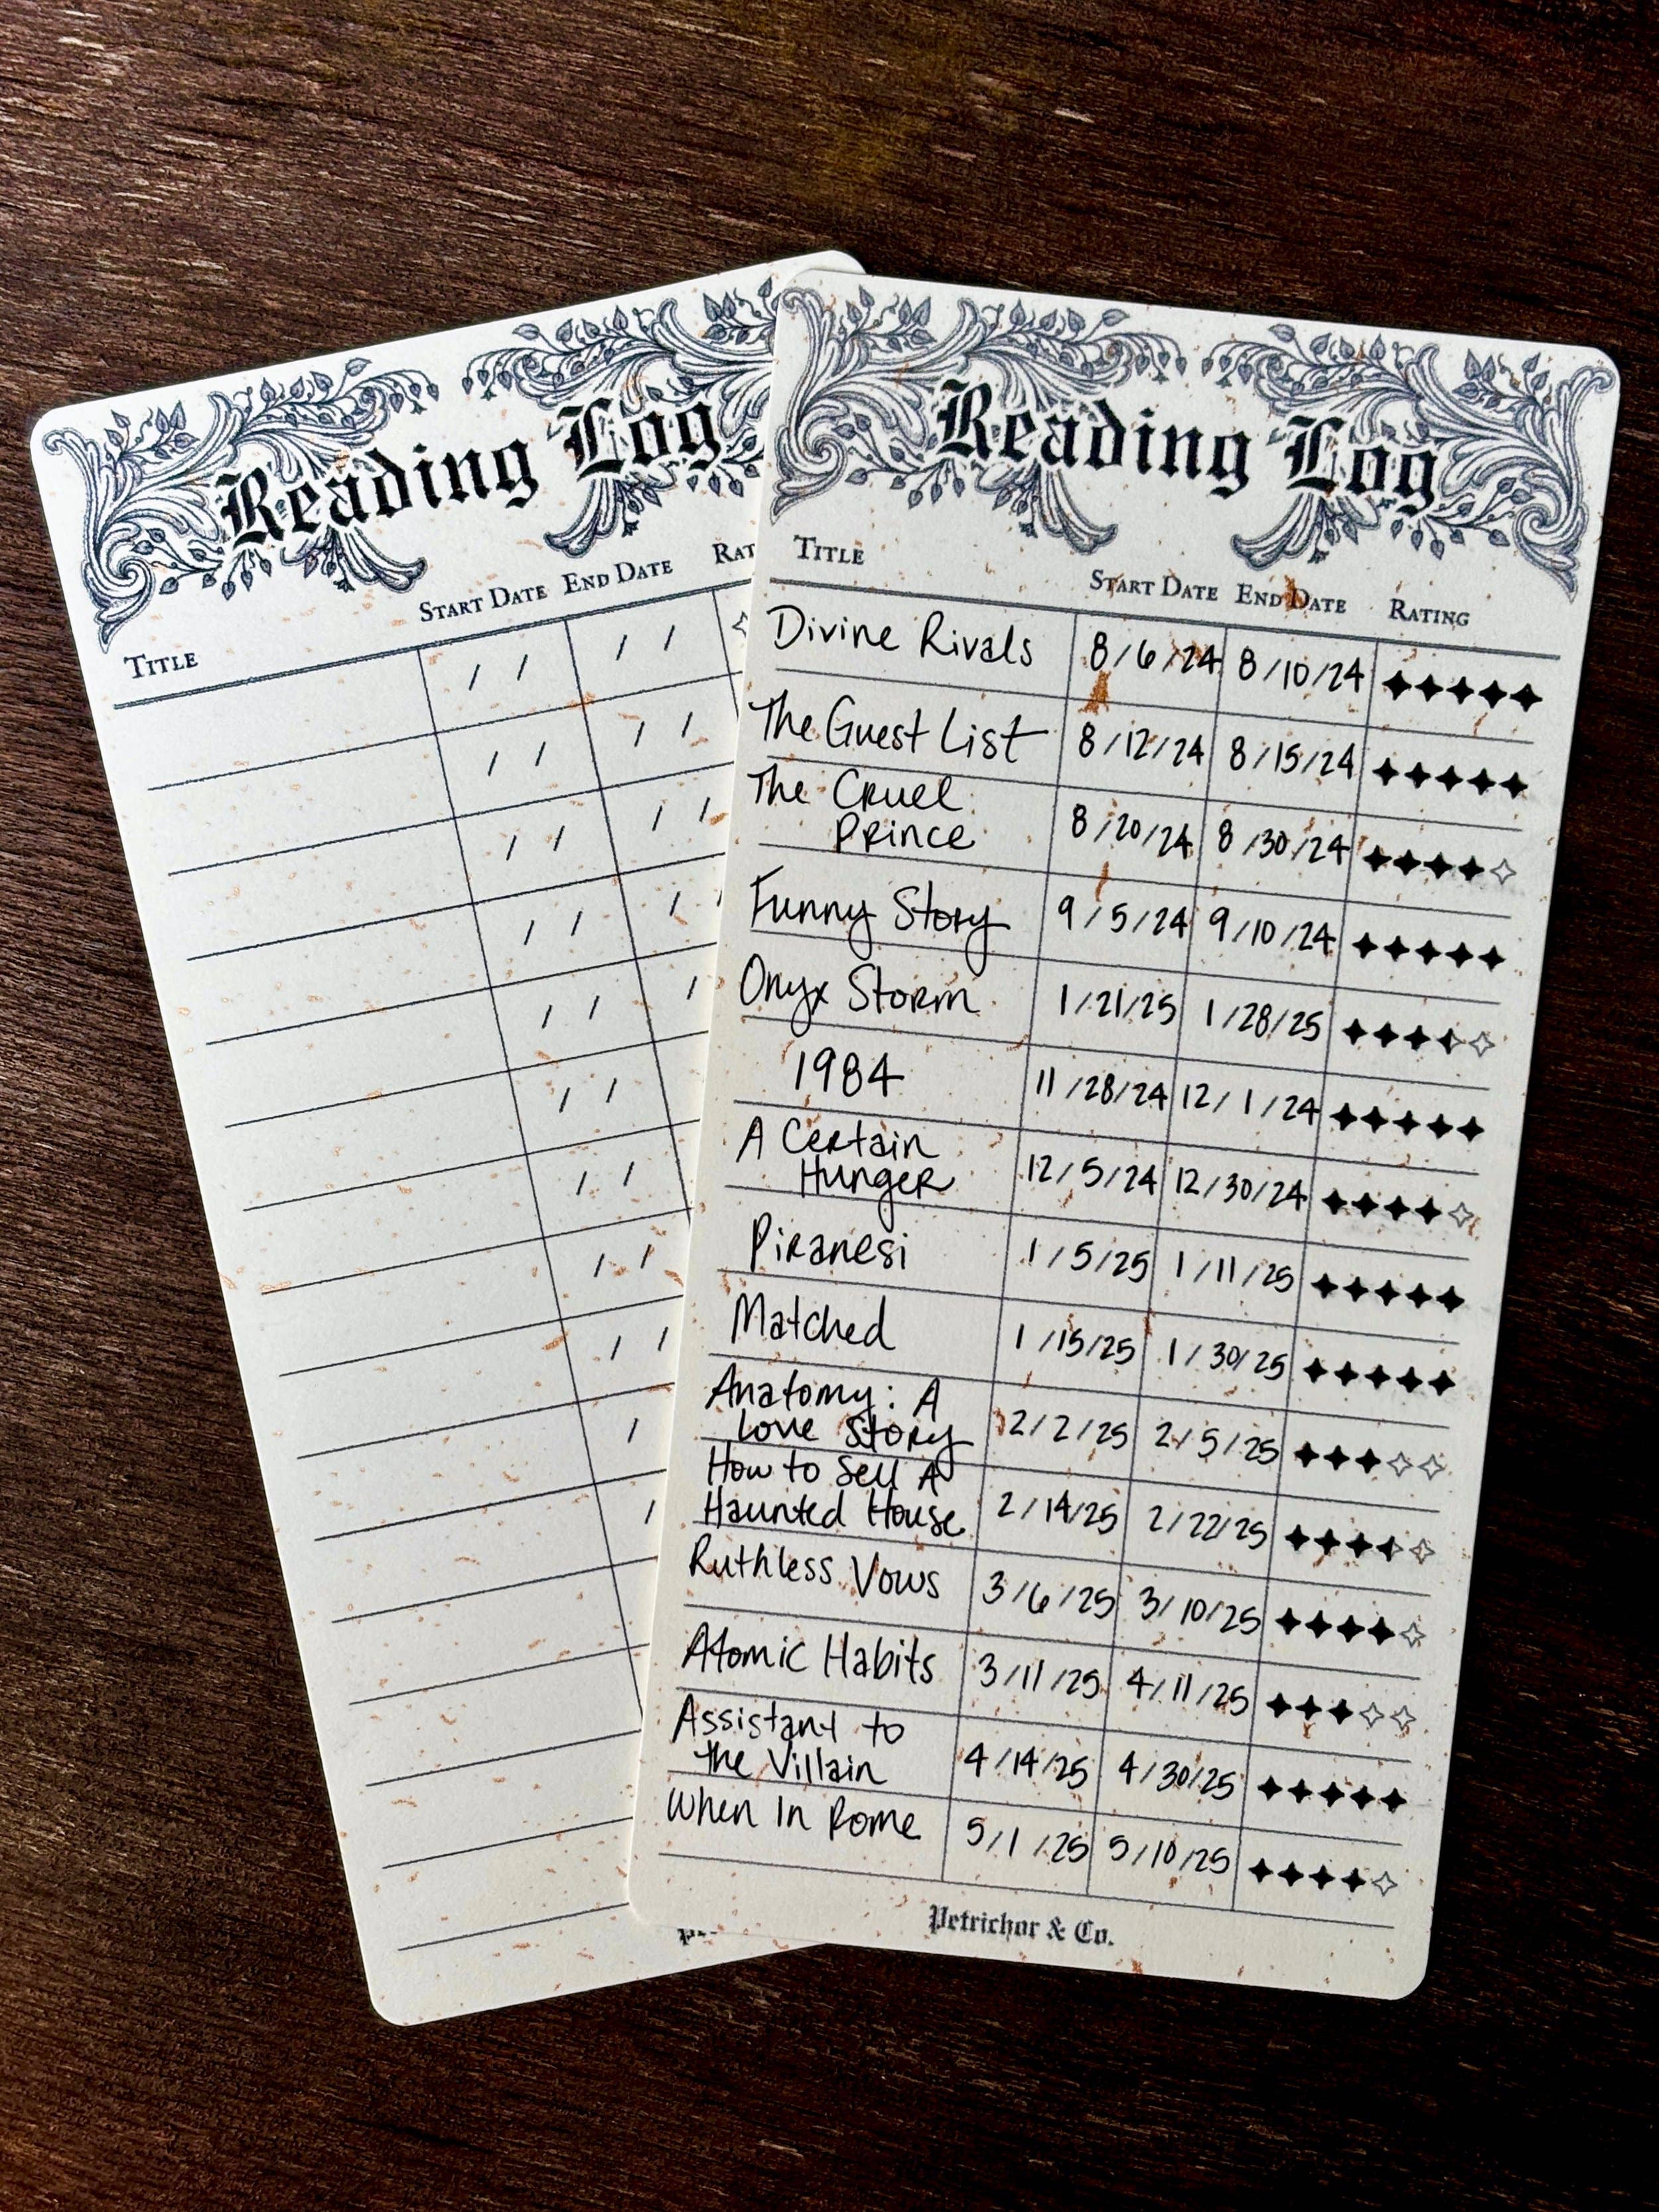 Reading Log
TITLE START DATE END DATE RAT
/ / / /
/ / / /
/ / / /
/ / / /
/ / /
/ /
/ /
/ /
/ /
/
/
Reading Log
TITLE START DATE END DATE RATING
Divine Rivals 8/6/24 8/10/24 ✦✦✦✦✦
The Guest List 8/12/24 8/15/24 ✦✦✦✦✦
The Cruel
Prince 8/20/24 8/30/24 ✦✦✦✦✧
Funny Story 9/5/24 9/10/24 ✦✦✦✦✦
Onyx Storm 1/21/25 1/28/25
1984 11/28/24 12/1/24 ✦✦✦✦✦
A Certain
Hunger 12/5/24 12/30/24 ✦✦✦✦✧
Piranesi 1/5/25 1/11/25 ✦✦✦✦✦
Matched 1/15/25 1/30/25 ✦✦✦✦✦
Anatomy: A
Love Story 2/2/25 2/5/25 ✦✦✦✧✧
How to Sell A
Haunted House 2/14/25 2/22/25
Ruthless Vows 3/6/25 3/10/25 ✦✦✦✦✧
Atomic Habits 3/11/25 4/11/25 ✦✦✦✧✧
Assistant to
the Villain 4/14/25 4/30/25 ✦✦✦✦✦
When In Rome 5/1/25 5/10/25 ✦✦✦✦✧
Petrichor & Co.